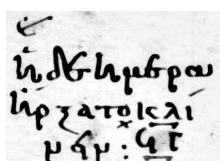 ἡ δὲ ἡμέρα
ἤρξατο κλί
νειν: